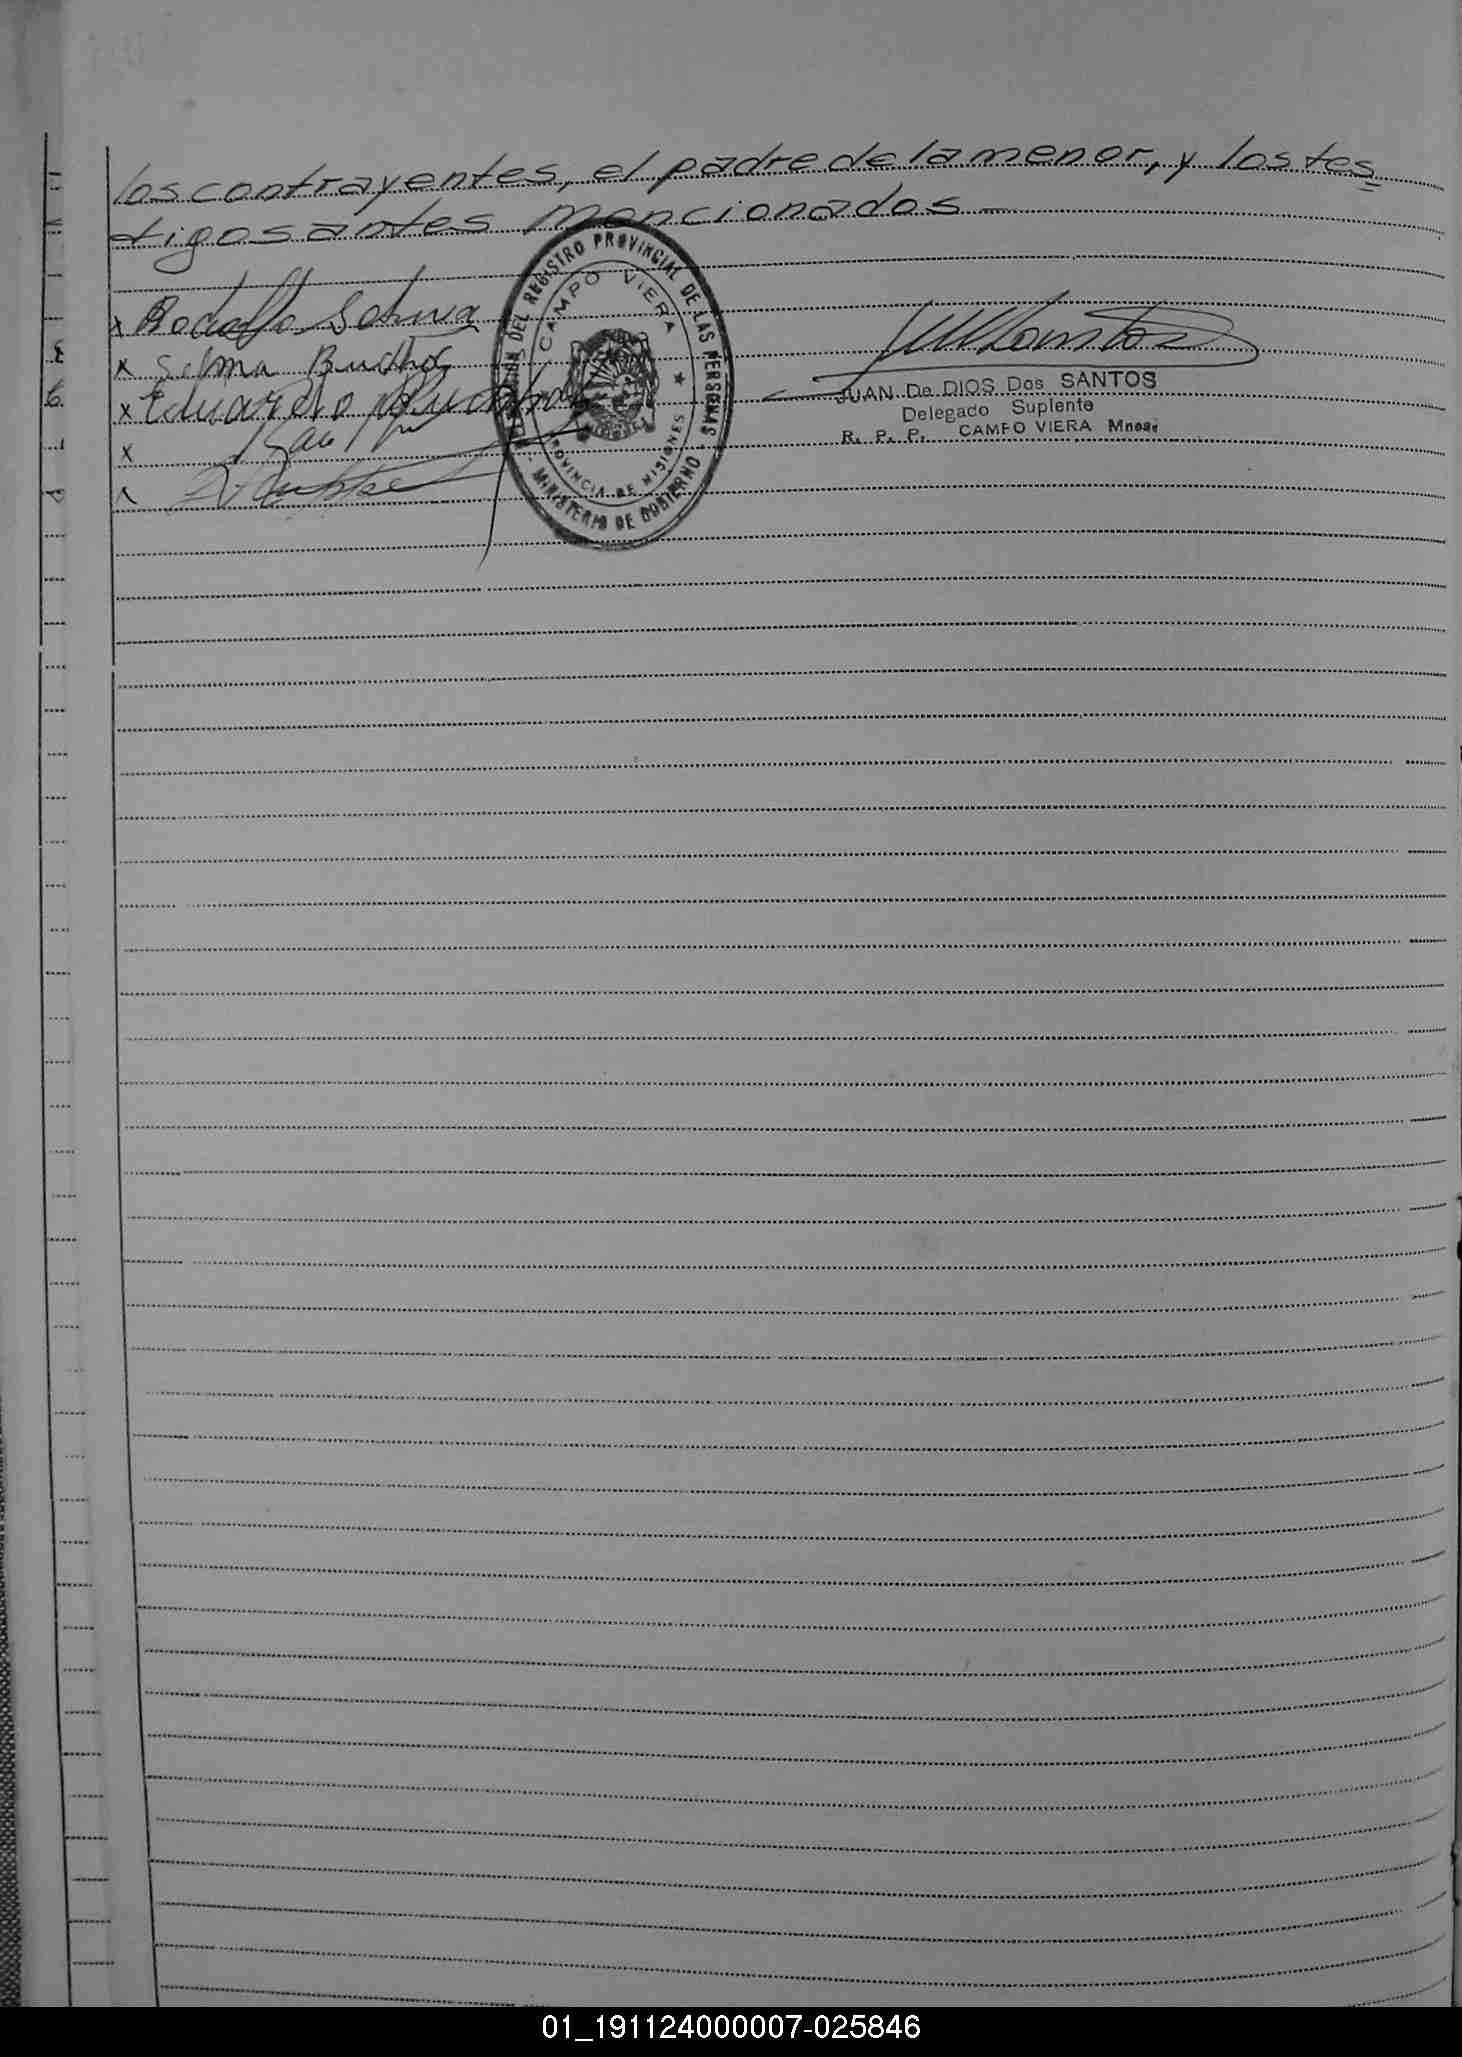 los contrayentes, el padre de la menor, y los tes
tigos antes mencionados —
x Rodolfo
x Selma
x Eduardo
x
DELEGACION DEL REGISTRO PROVINCIAL DE LAS PERSONAS
CAMPO VIERA
PROVINCIA DE MISIONES
MINISTERIO DE GOBIERNO
JUAN De DIOS Dos SANTOS
Delegado Suplente
R. P. P. CAMPO VIERA Mnes.
01_191124000007-025846